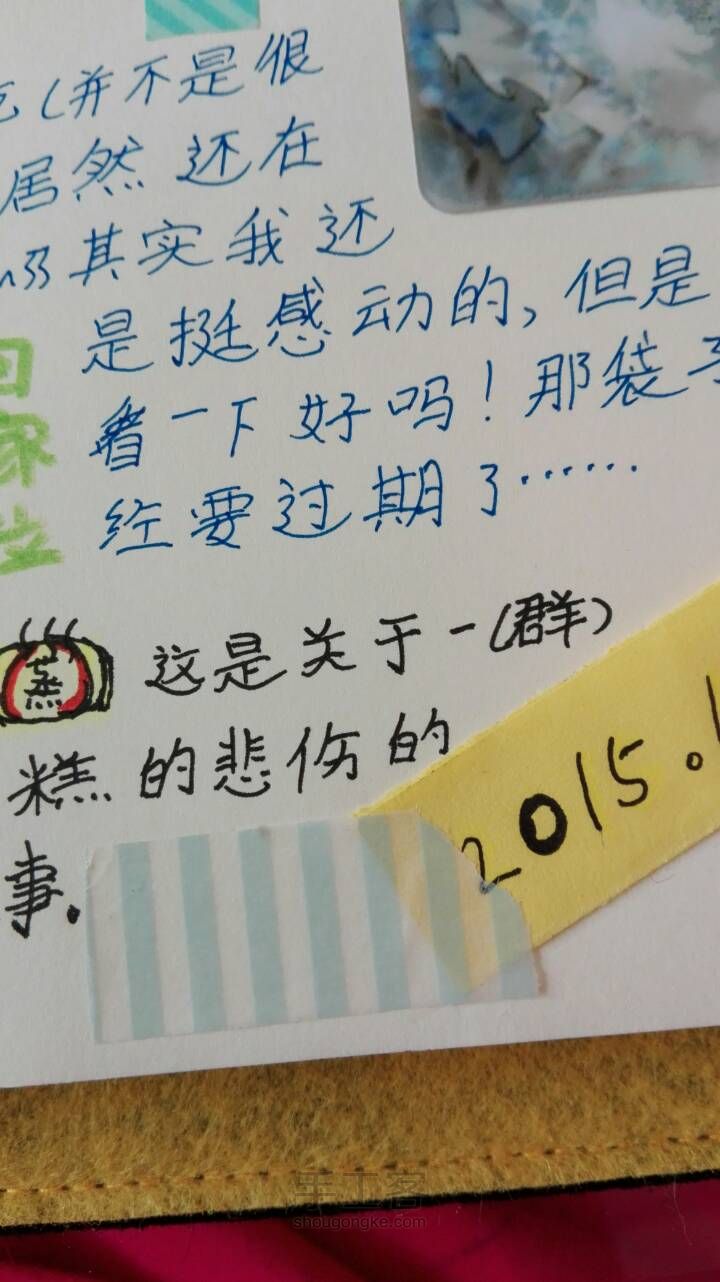 吃(并不是很
居然还在
奶其实我还
是挺感动的,但是
看一下好吗!那袋子
经要过期了……
回
家
这是关于一(群)
蒸
糕的悲伤的
事.
2015.1
手工客
shougongke.com